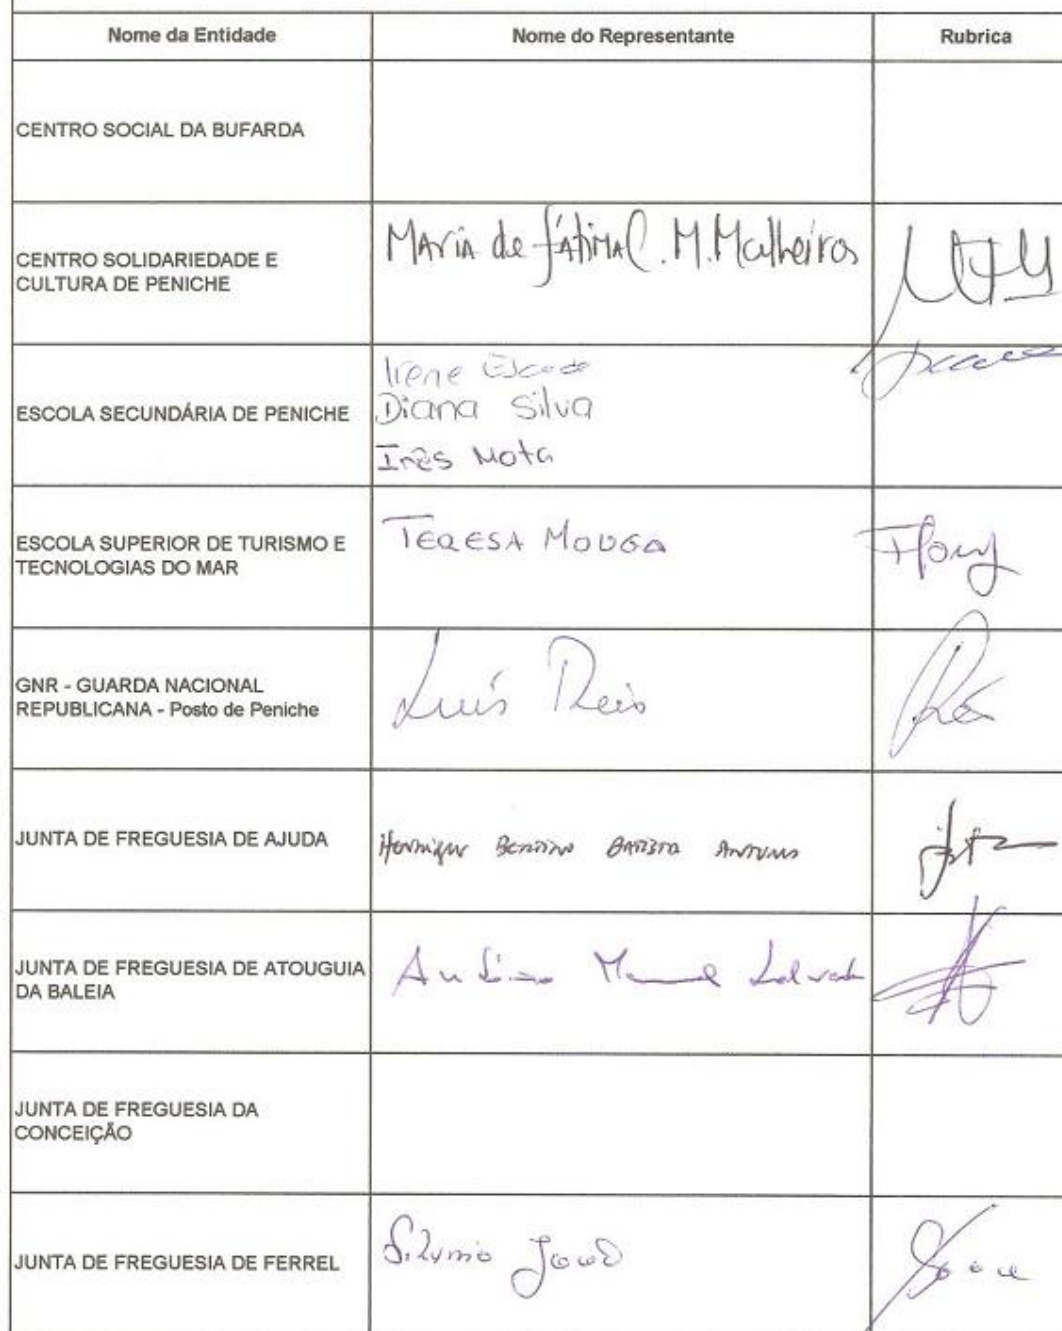 Nome da Entidade Nome do Representante Rubrica
CENTRO SOCIAL DA BUFARDA
CENTRO SOLIDARIEDADE E
CULTURA DE PENICHE
Maria de Fátima C. M. Malheiros
ESCOLA SECUNDÁRIA DE PENICHE
Irene
Diana Silva
Inês Mota
ESCOLA SUPERIOR DE TURISMO E
TECNOLOGIAS DO MAR
TERESA MOUGA
GNR - GUARDA NACIONAL
REPUBLICANA - Posto de Peniche
Luís Reis
JUNTA DE FREGUESIA DE AJUDA
Henrique BATISTA ANTUNES
JUNTA DE FREGUESIA DE ATOUGUIA
DA BALEIA
António Manuel Salvador
JUNTA DE FREGUESIA DA
CONCEIÇÃO
JUNTA DE FREGUESIA DE FERREL
Silvino João